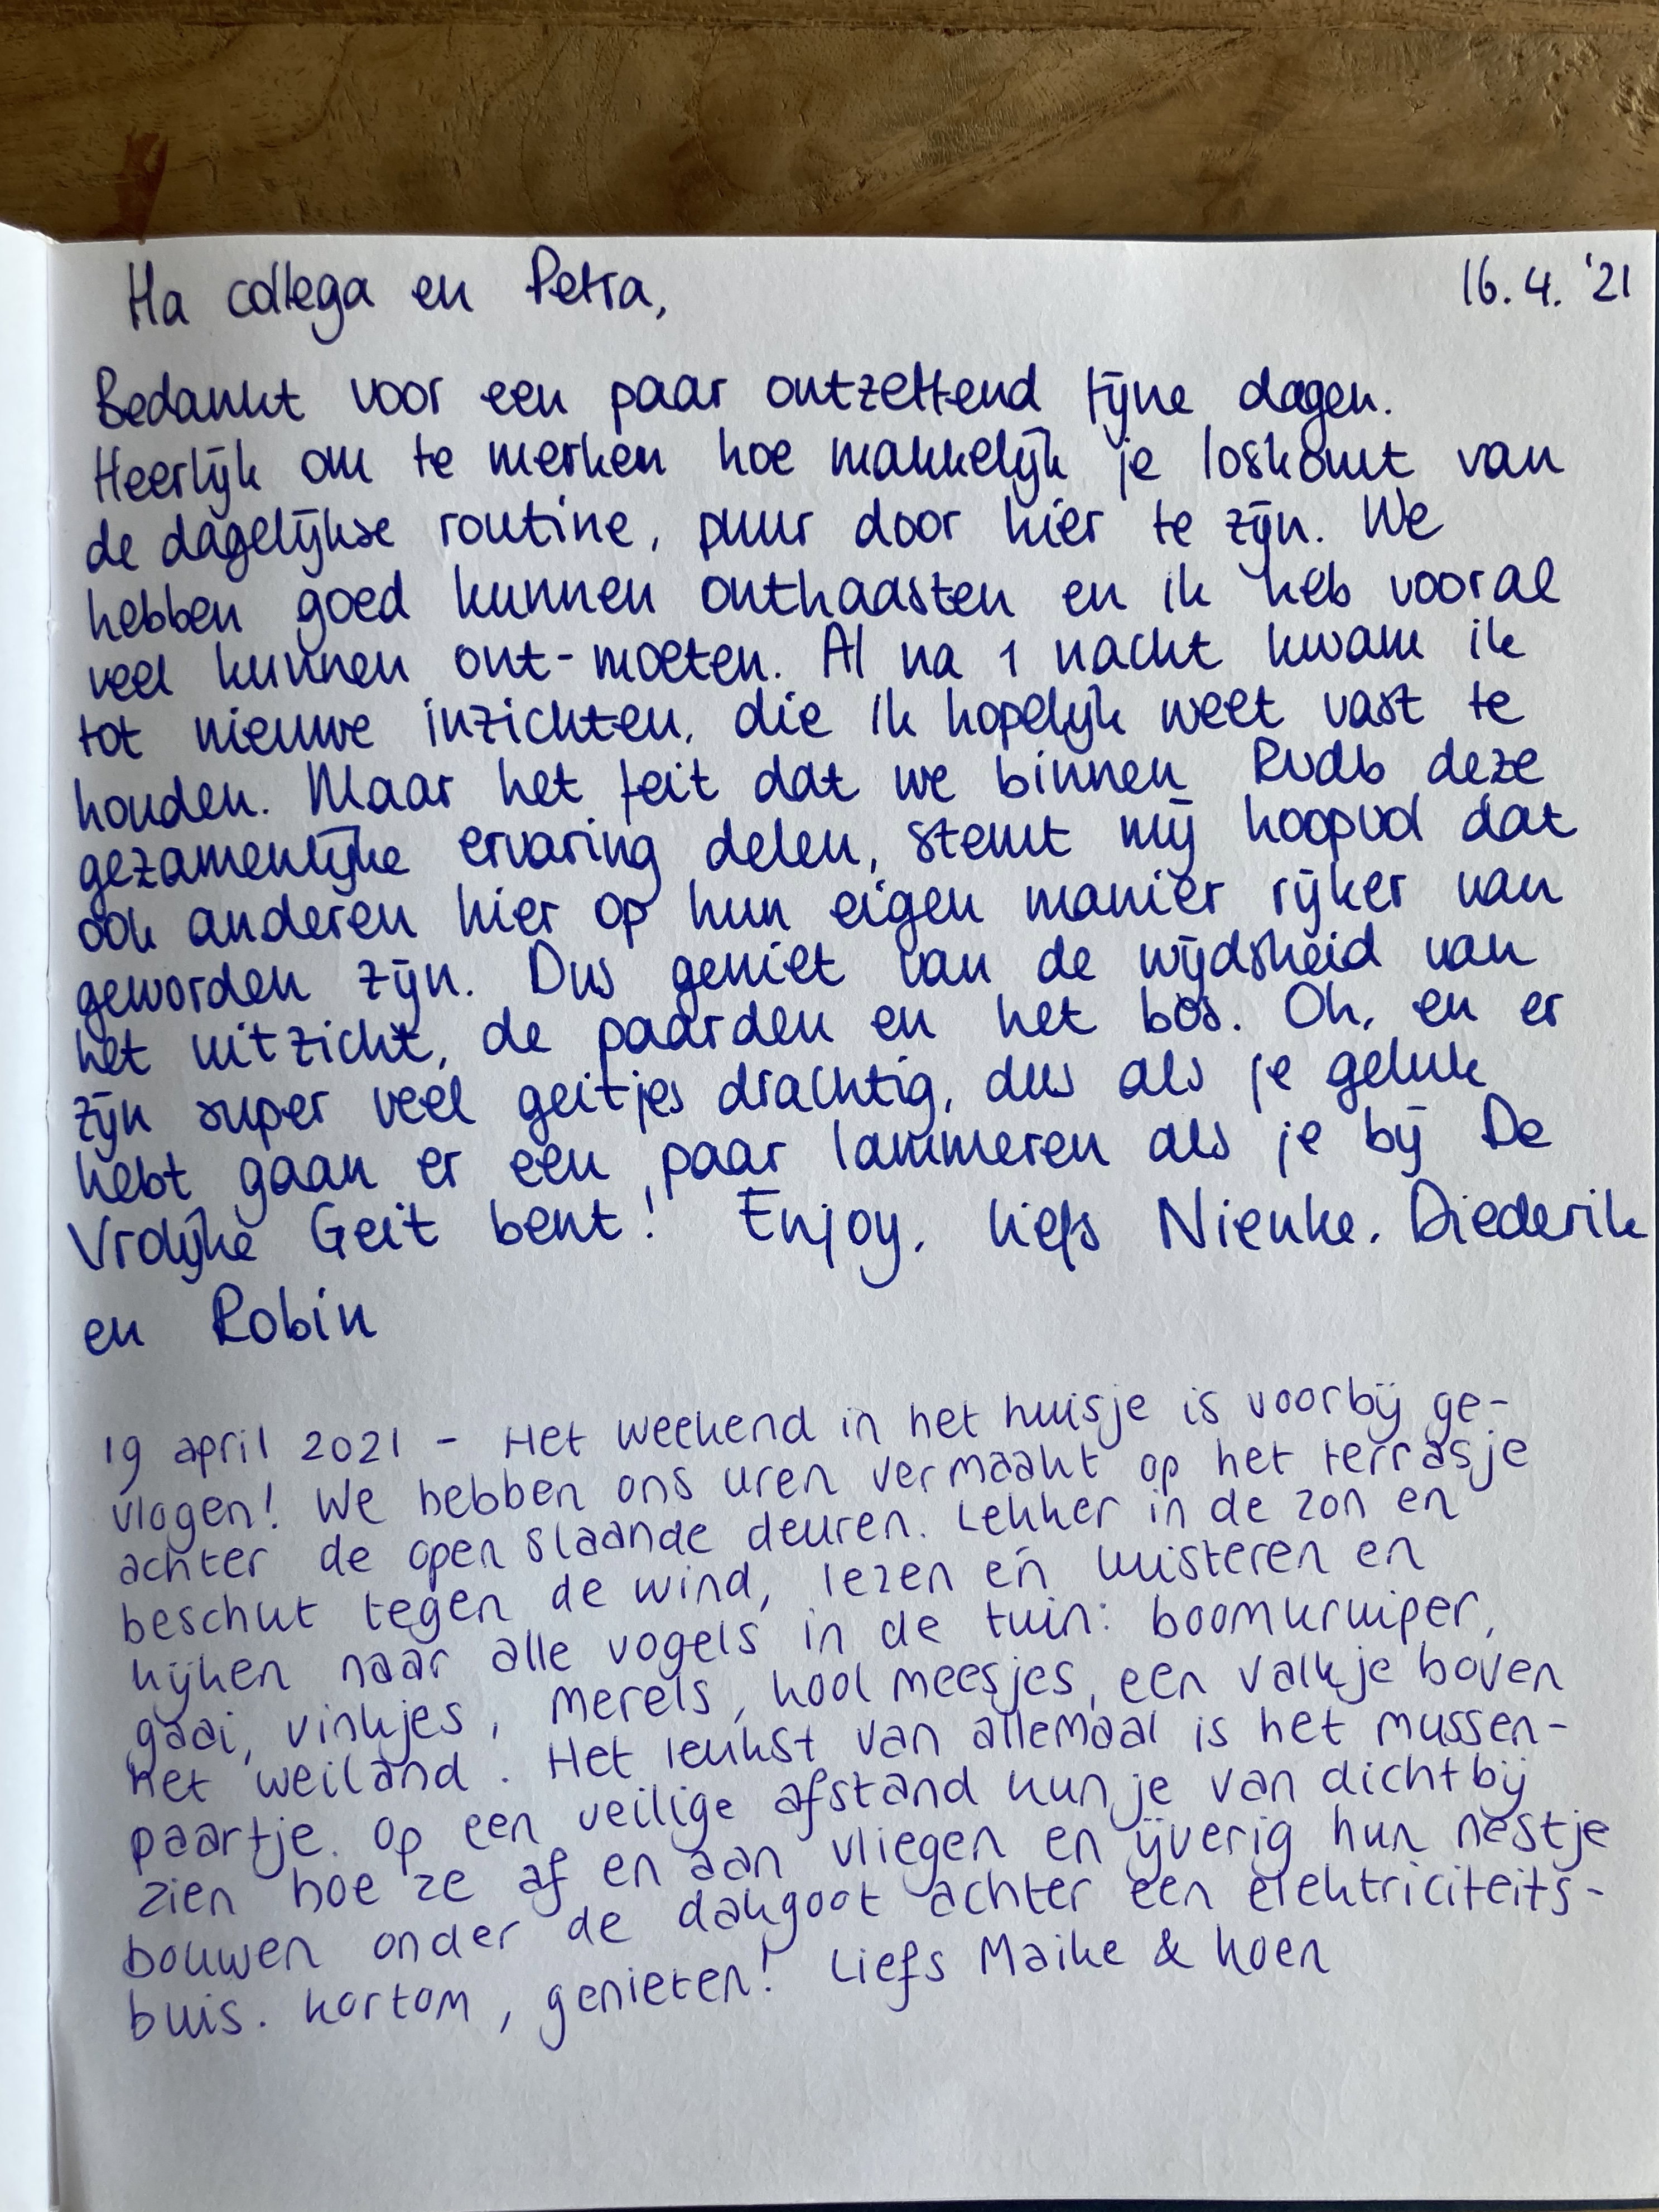 Ha collega en Petra,
16.4.'21
Bedankt voor een paar ontzettend fijne dagen.
Heerlijk om te merken hoe makkelijk je loskomt van
de dagelijkse routine, puur door hier te zijn. We
hebben goed kunnen onthaasten en ik heb vooral
veel kunnen ont-moeten. Al na 1 nacht kwam ik
tot nieuwe inzichten, die ik hopelijk weet vast te
houden. Maar het feit dat we binnen Rvdb deze
gezamenlijke ervaring delen, stemt mij hoopvol dat
ook anderen hier op hun eigen manier rijker van
geworden zijn. Dus geniet van de wijdsheid van
het uitzicht, de paarden en het bos. Oh, en er
zijn super veel geitjes drachtig, dus als je geluk
hebt gaan er een paar lammeren als je bij De
Vrolijke Geit bent! Enjoy, liefs Nienke, Diederik
en Robin
19 april 2021 - Het weekend in het huisje is voorbij ge-
vlogen! We hebben ons uren vermaakt op het terrasje
achter de open slaande deuren. Lekker in de zon en
beschut tegen de wind, lezen en luisteren en
kijken naar alle vogels in de tuin: boomkruiper,
gaai, vinkjes, merels, koolmeesjes, een valkje boven
het weiland. Het leukst van allemaal is het mussen-
paartje. Op een veilige afstand kun je van dichtbij
zien hoe ze af en aan vliegen en ijverig hun nestje
bouwen onder de dakgoot achter een elektriciteits-
buis. Kortom, genieten! Liefs Maike & Koen